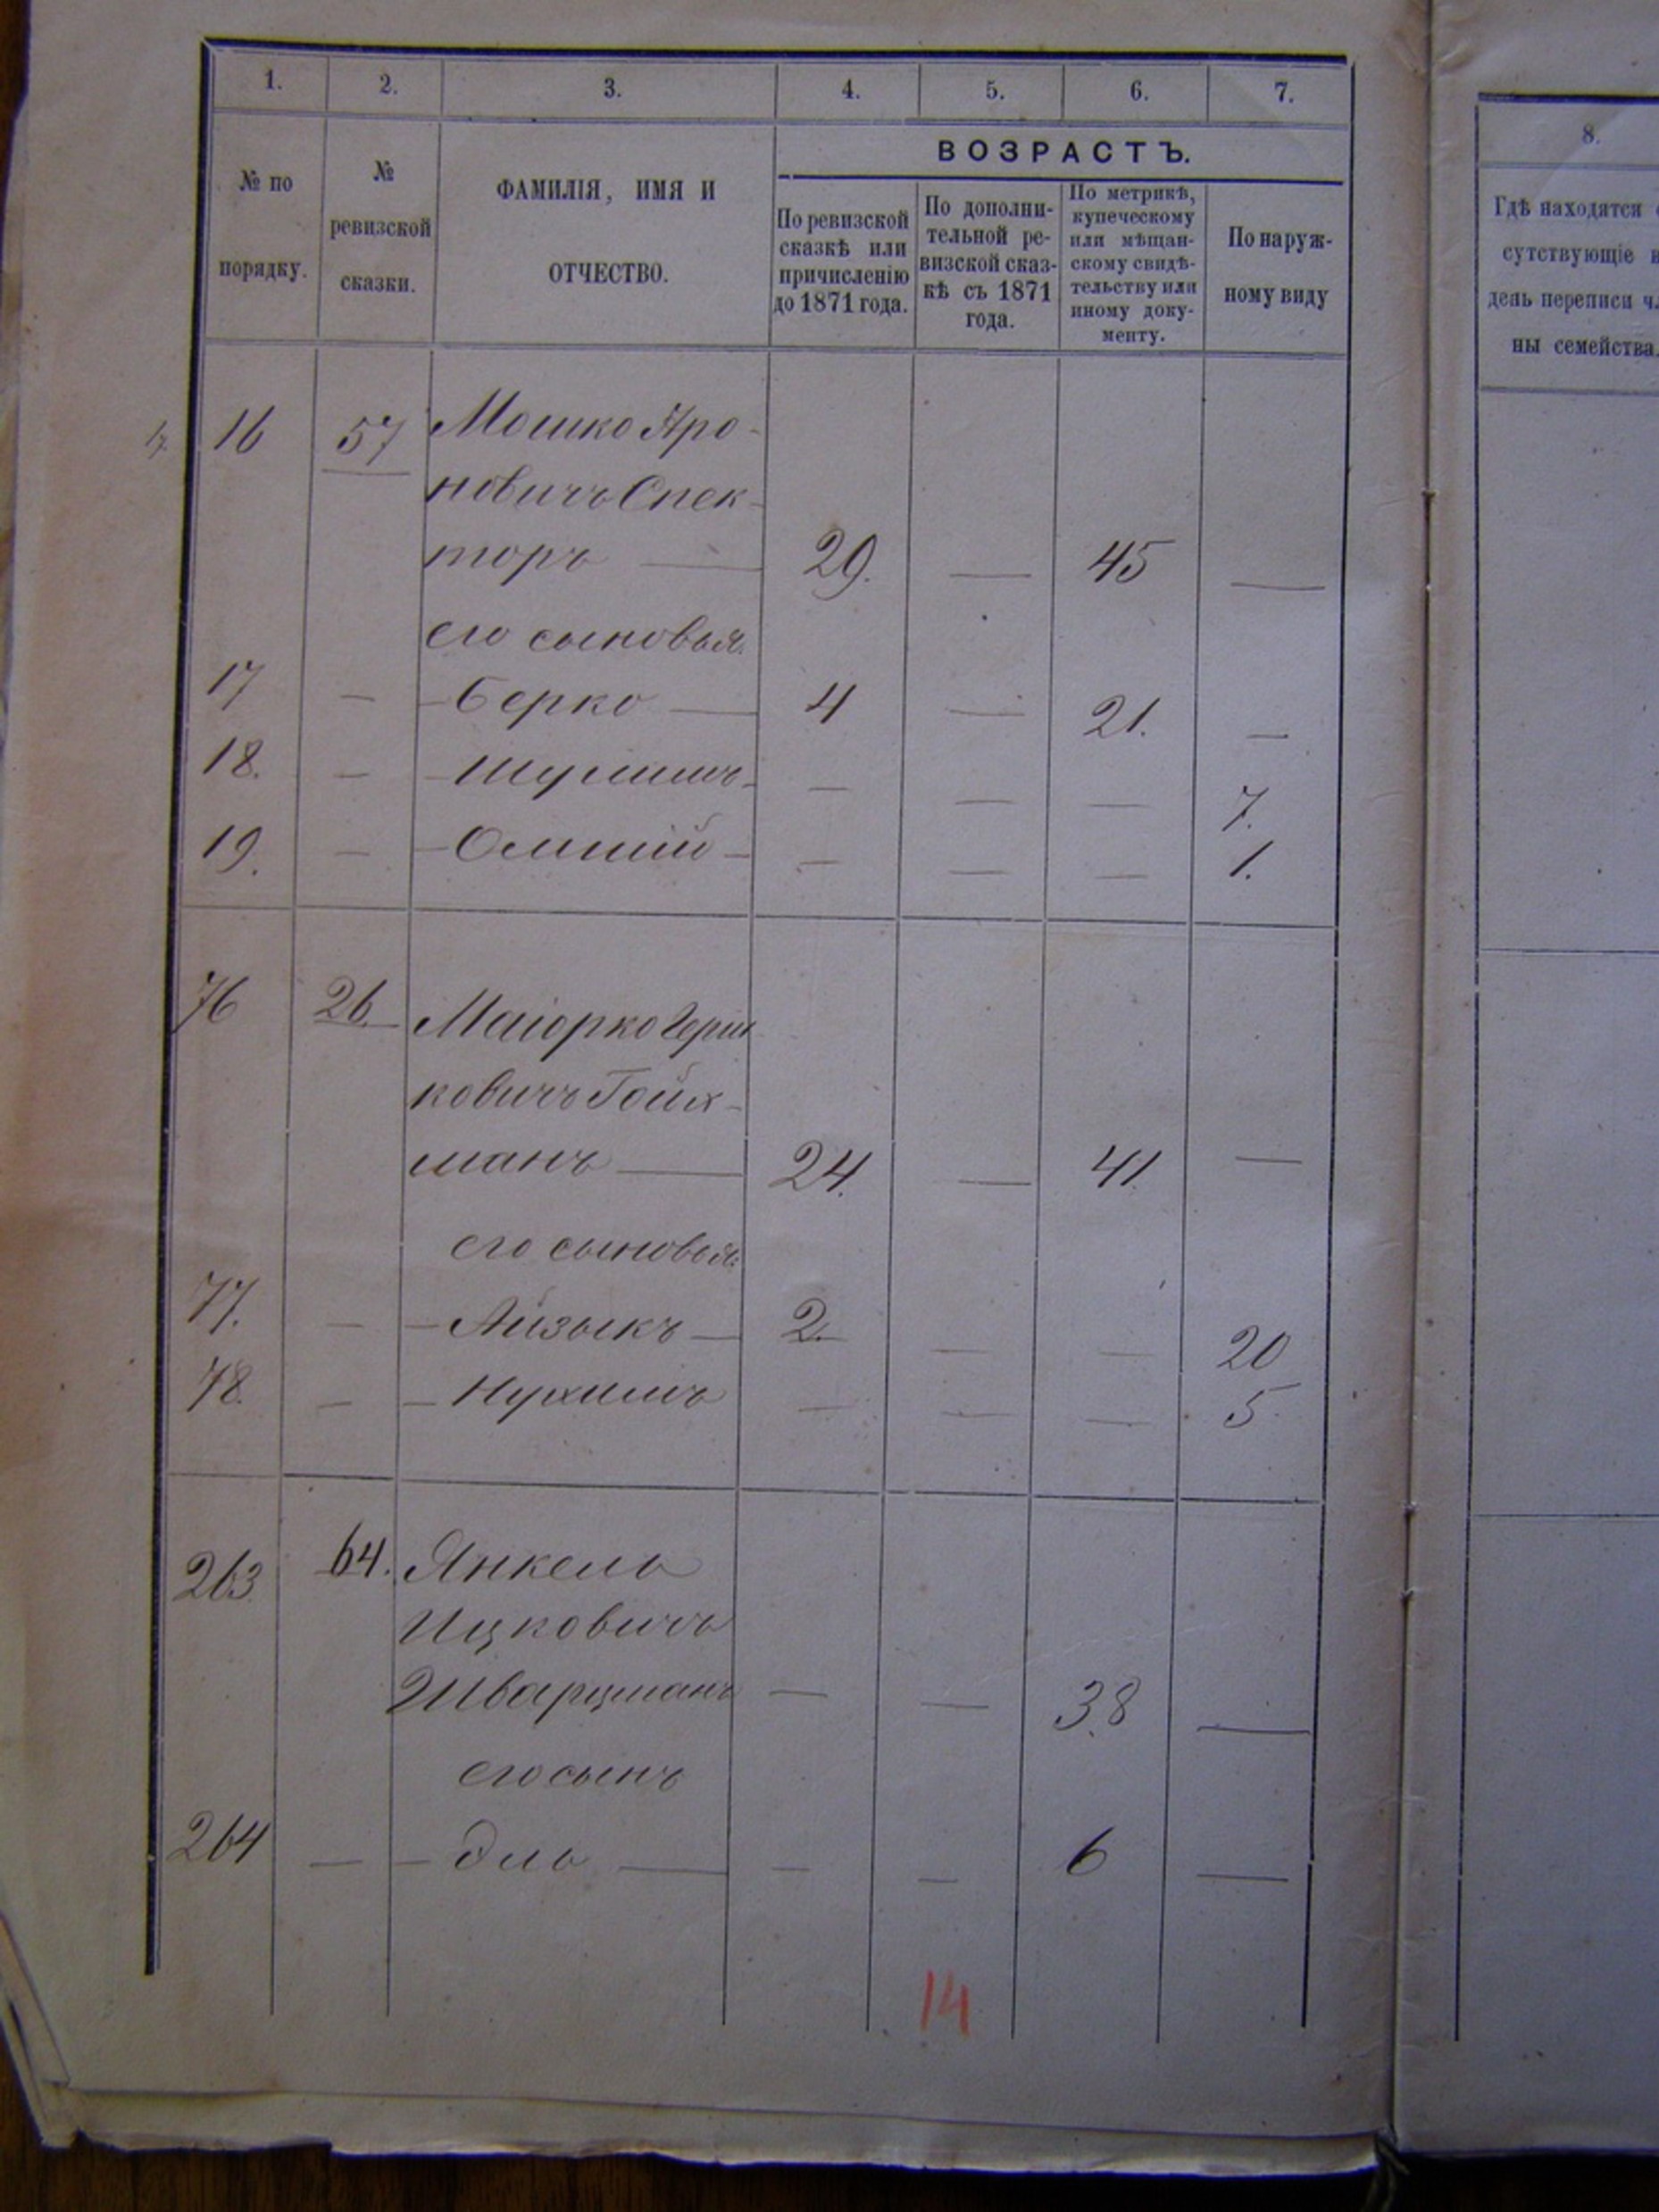 1. 2. 3. 4. 5. 6. 7.
№ по порядку.
№ ревизской сказки.
ФАМИЛІЯ, ИМЯ И
ОТЧЕСТВО.
ВОЗРАСТЪ.
По ревизской
сказкѣ или
причисленію
до 1871 года.
По дополни-
тельной ре-
визской сказ-
кѣ съ 1871
года.
По метрикѣ,
купеческому
или мѣщан-
скому свидѣ-
тельству или
иному доку-
менту.
По наруж-
ному виду
16 57 Мошко Аро-
новичъ Спек-
торъ — 29. — 45 —
его сыновья:
17 — — Берко — 4 — 21. —
18. — — Шулимъ — — — — 7.
19. — — — — — — 1.
76 26. Маіорко Герш
ковичъ Гойх-
манъ — 24. — 41. —
его сыновья:
77. — — Айзыкъ — 2. — — 20
78. — — Нухимъ — — — 5.
263. 64. Янкель
Ицковичъ
Шварцманъ — — 38 —
его сынъ
264 — — Эль — — — 6 —
14
8.
Гдѣ находятся
сутствующіе
день переписи
ны семейства.